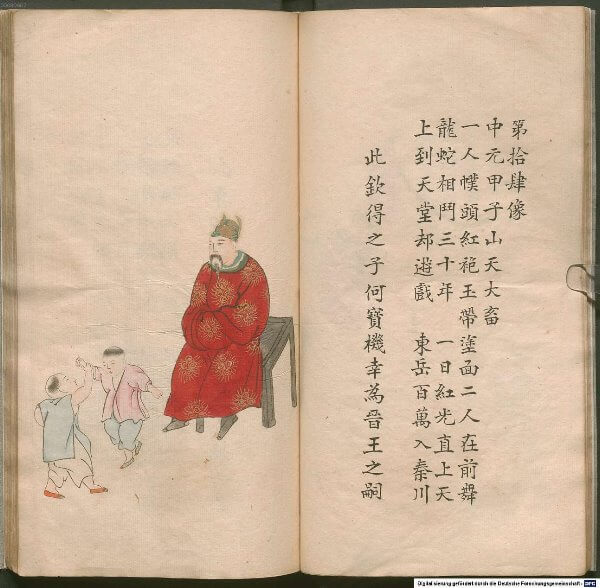 第拾肆像
中元甲子山天大畜
一人幞頭紅袍玉帶塗面二人在前舞
龍蛇相鬥三十年 一日紅光直上天
上到天堂却遊戲 東岳百萬入秦川
此欽得之子何寶機幸為晉王之嗣
Digitalisierung gefördert durch die Deutsche Forschungsgemeinschaft: DFG